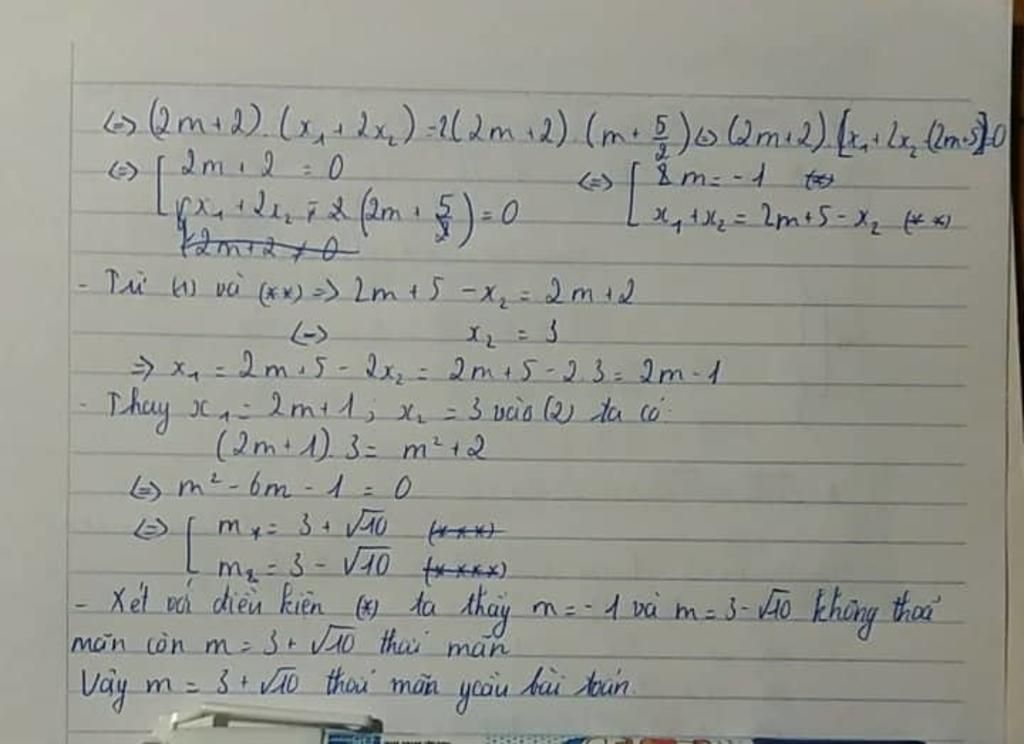 ⇔ (2m+2).(x₁+2x₂)=2(2m+2).(m+5/2)⇔(2m+2).[x₁+2x₂-(2m+5)]=0
⇔ [ 2m+2 = 0 ⇔ [ m = -1
x₁+2x₂ - 2(2m+5/2)=0 x₁+x₂ = 2m+5-x₂ (**)
2m+2 ≠ 0
- Từ (1) và (**) => 2m+5 -x₂ = 2m+2
(=) x₂ = 3
=> x₁ = 2m+5 - 2x₂ = 2m+5-2.3 = 2m-1
- Thay x₁ = 2m+1; x₂ = 3 vào (2) ta có:
(2m+1).3 = m²+2
⇔ m² - 6m - 1 = 0
⇔ [ m₁ = 3 + √10 (***)
m₂ = 3 - √10 (****)
- Xét với điều kiện (*) ta thấy m = -1 và m = 3-√10 không thoả
mãn còn m = 3 + √10 thoả mãn
Vậy m = 3 + √10 thoả mãn ycầu bài toán.